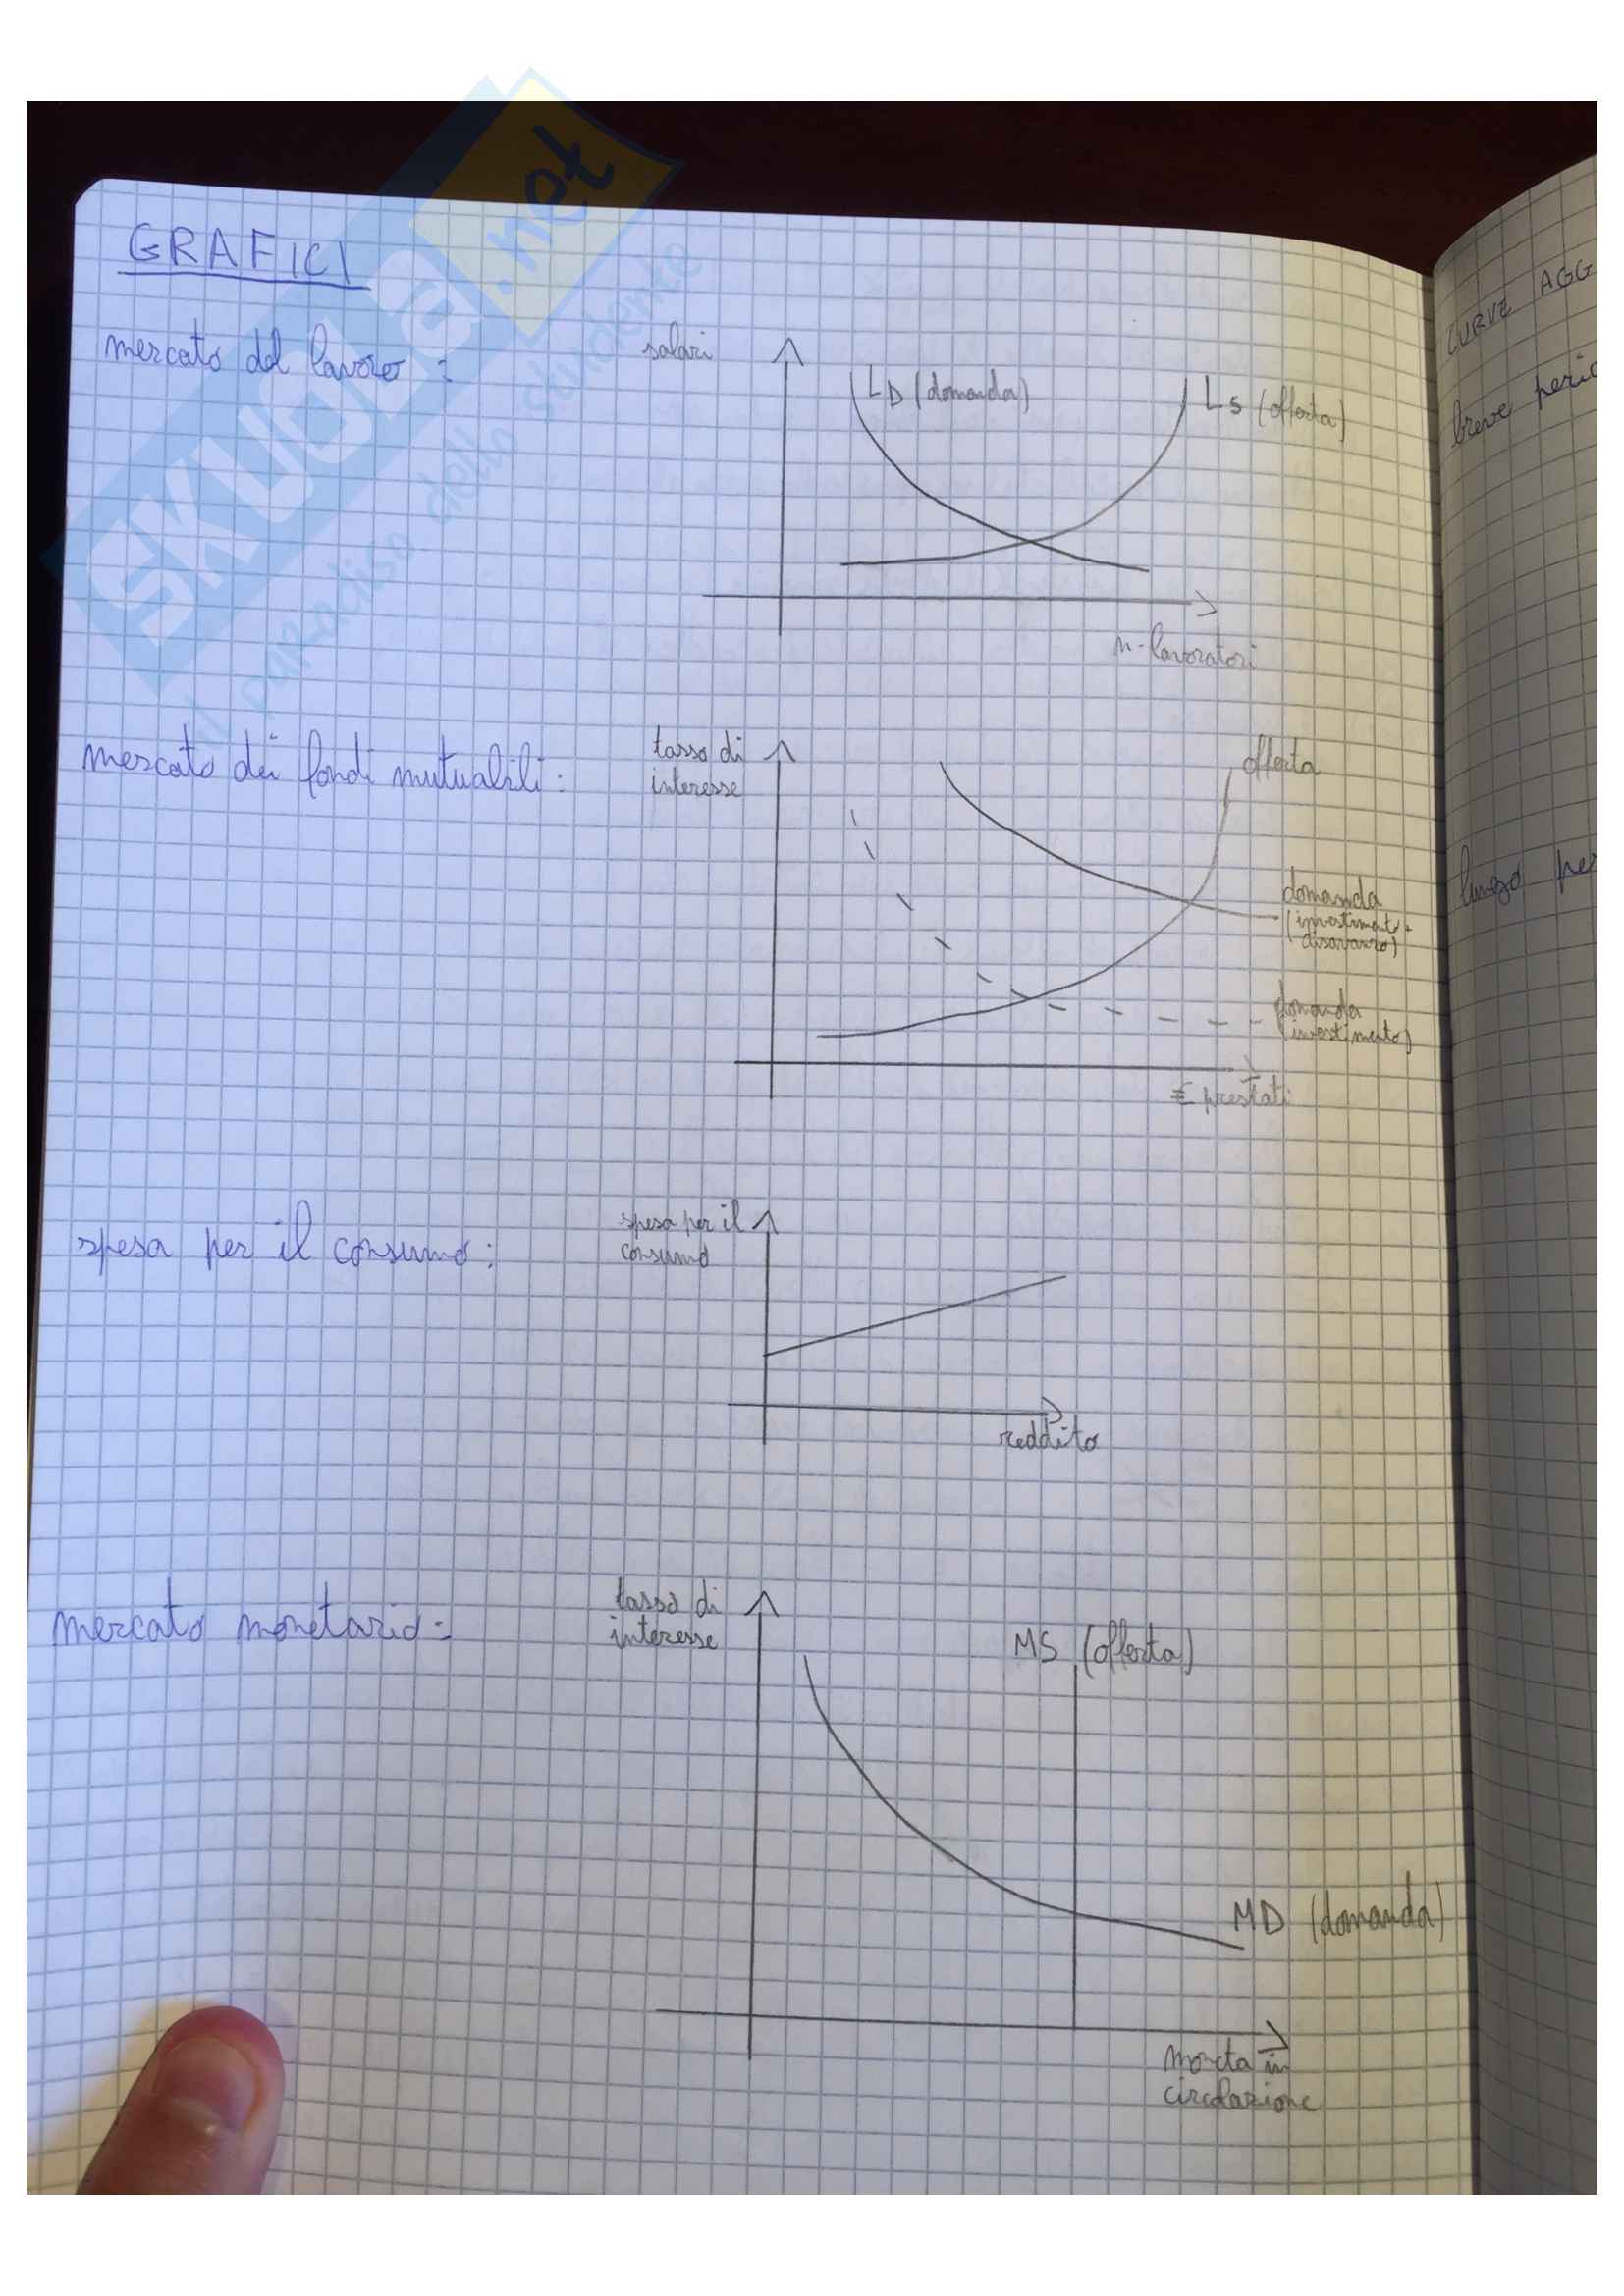 SKUOLA.net
il paradiso dello studente
GRAFICI
mercato del lavoro:
salari
LD (domanda)
LS (offerta)
n. lavoratori
mercato dei fondi mutuabili:
tasso di
interesse
offerta
domanda
(investimento+
disavanzo)
domanda
(investimento)
€ prestati
spesa per il consumo:
spesa per il
consumo
reddito
mercato monetario:
tasso di
interesse
MS (offerta)
MD (domanda)
moneta in
circolazione
CURVE AGG
breve perio
lungo per